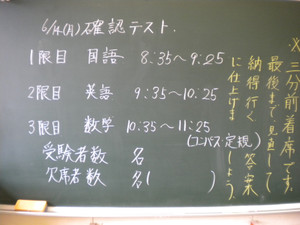 6/14(月)確認テスト.
1限目 国語 8:35～9:25
2限目 英語 9:35～10:25
3限目 数学 10:35～11:25
(コンパス定規)
受験者数 名
欠席者数 名( )
※三分前着席です。
最後まで見直して
納得行く答案
に仕上げましょう。